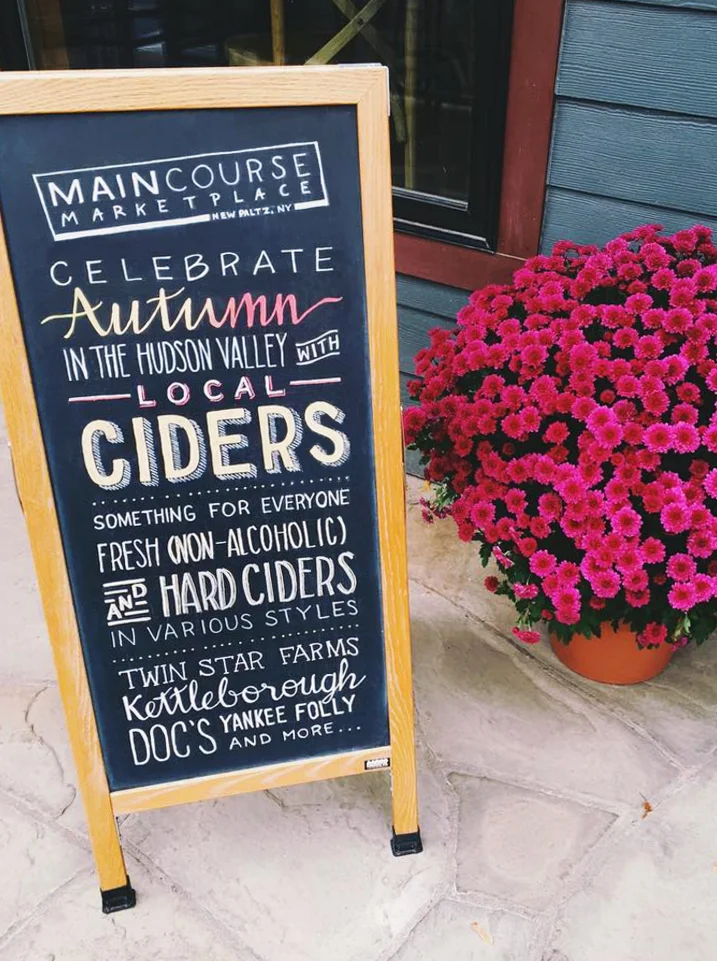 MAINCOURSE
MARKETPLACE
NEW PALTZ, NY
CELEBRATE
Autumn
IN THE HUDSON VALLEY WITH
LOCAL
CIDERS
SOMETHING FOR EVERYONE
FRESH (NON-ALCOHOLIC)
AND HARD CIDERS
IN VARIOUS STYLES
TWIN STAR FARMS
Kettleborough
DOC'S YANKEE FOLLY
AND MORE...